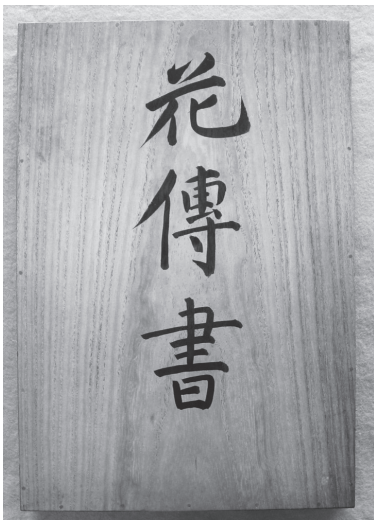 花傳書